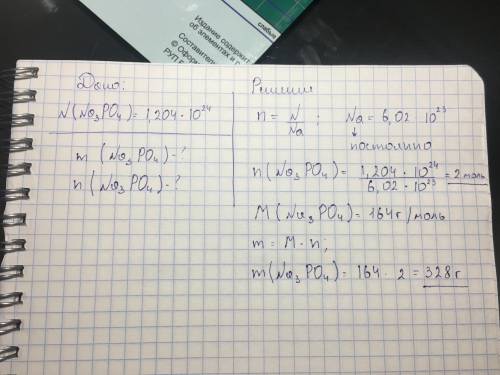 слабые
Издание содержит
об элементах и
Составители
© Оформ
РУП
Дано:
N(Na₃PO₄) = 1,204·10²⁴
m (Na₃PO₄) - ?
n (Na₃PO₄) - ?
Решение
n = N/Na ; Na = 6,02 10²³
↓
постоянно
n(Na₃PO₄) = 1,204·10²⁴/6,02·10²³ = 2 моль
M(Na₃PO₄) = 164 г/моль
m = M·n;
m(Na₃PO₄) = 164·2 = 328 г